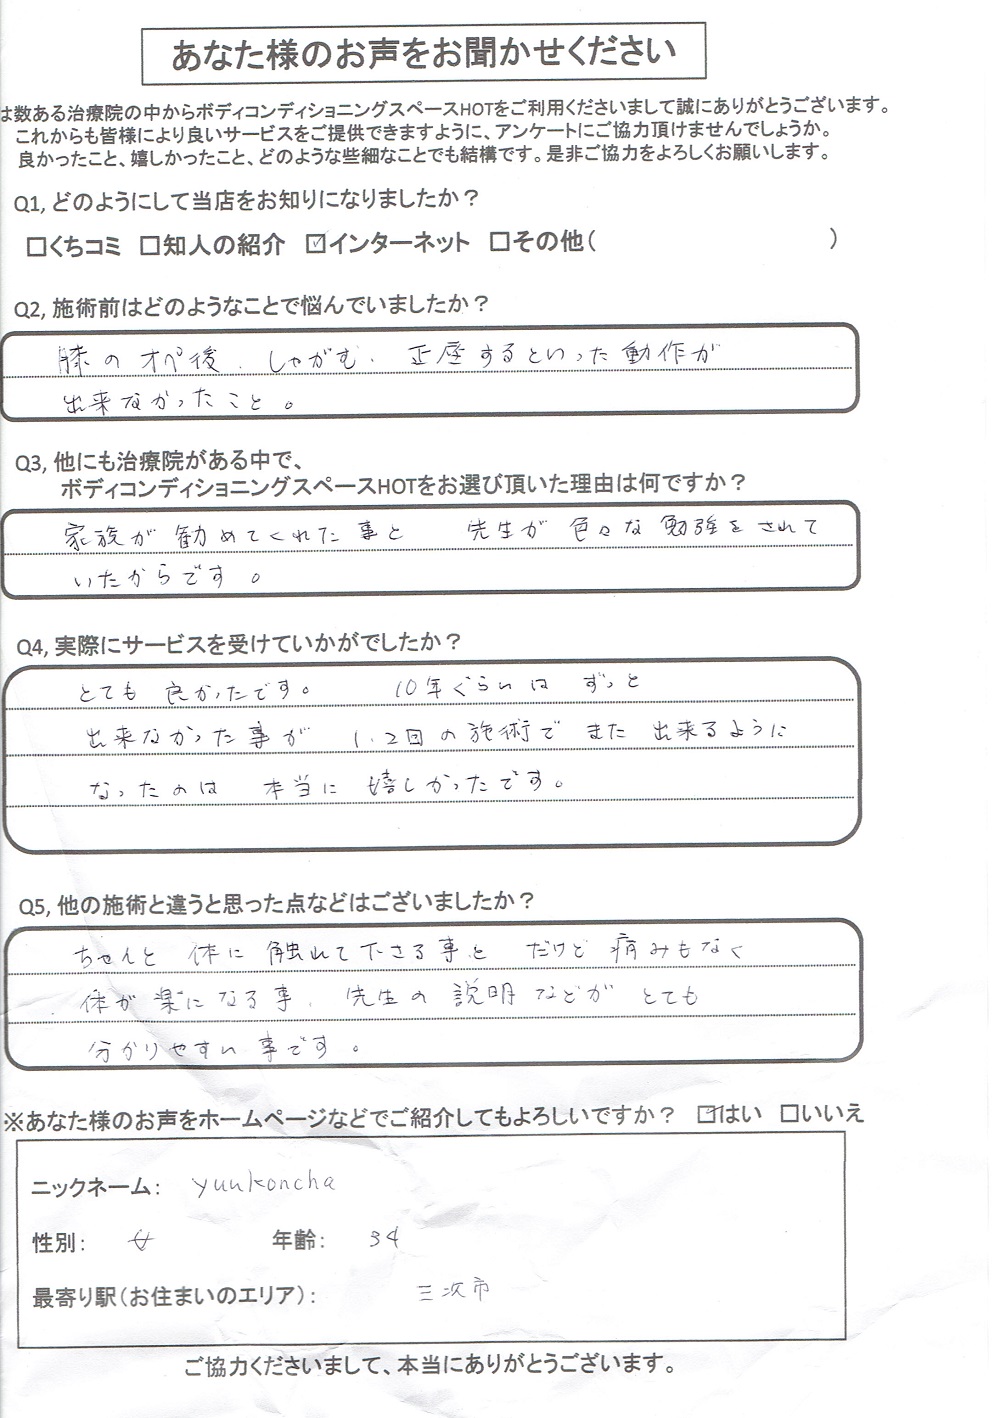 あなた様のお声をお聞かせください
は数ある治療院の中からボディコンディショニングスペースHOTをご利用くださいまして誠にありがとうございます。
これからも皆様により良いサービスをご提供できますように、アンケートにご協力頂けませんでしょうか。
良かったこと、嬉しかったこと、どのような些細なことでも結構です。是非ご協力をよろしくお願いします。
Q1, どのようにして当店をお知りになりましたか？
□くちコミ □知人の紹介 ☑インターネット □その他( )
Q2, 施術前はどのようなことで悩んでいましたか？
膝のオペ後、しゃがむ、正座するといった動作が
出来なかったこと。
Q3, 他にも治療院がある中で、
ボディコンディショニングスペースHOTをお選び頂いた理由は何ですか？
家族が勧めてくれた事と 先生が色々な勉強をされて
いたからです。
Q4, 実際にサービスを受けていかがでしたか？
とても良かったです。 10年ぐらいはずっと
出来なかった事が1、2回の施術でまた出来るように
なったのは 本当に嬉しかったです。
Q5, 他の施術と違うと思った点などはございましたか？
ちゃんと体に触れて下さる事と だけど痛みもなく
体が楽になる事、先生の説明などがとても
分かりやすい事です。
※あなた様のお声をホームページなどでご紹介してもよろしいですか？ ☑はい □いいえ
ニックネーム： yuukoncha
性別： 女 年齢： 34
最寄り駅(お住まいのエリア)： 三次市
ご協力くださいまして、本当にありがとうございます。